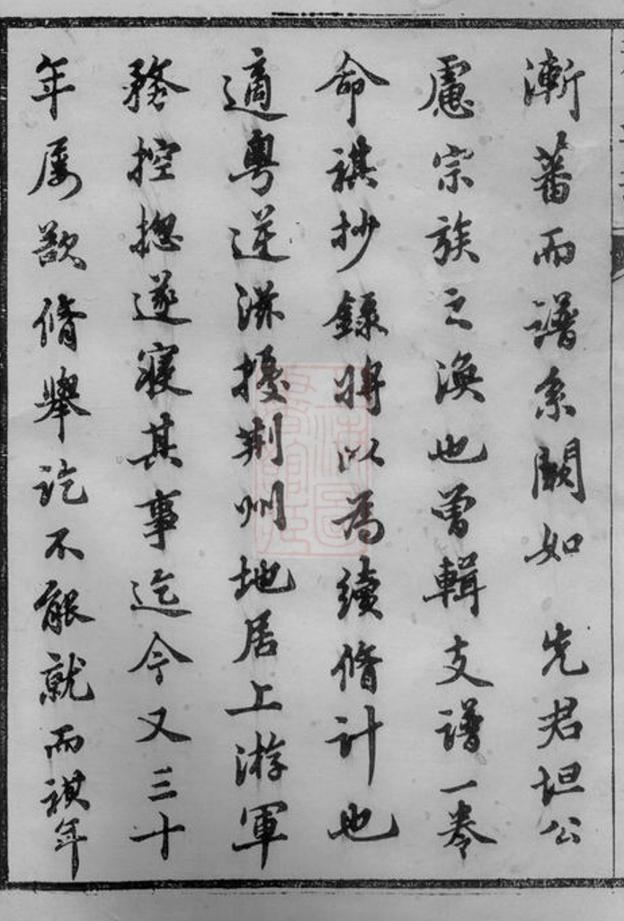 漸蕃而譜系闕如　先君坦公
慮宗族之渙也曾輯支譜一卷
命祺抄錄將以為續脩計也
適粵逆滋擾荆州地居上游軍
務控揔遂寢其事迄今又三十
年屡欲脩舉訖不能就而祺年